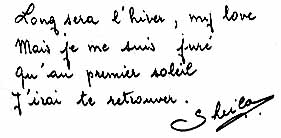 Long sera l'hiver, my love
Mais je me suis juré
Qu'au premier soleil
J'irai te retrouver.
Sheila